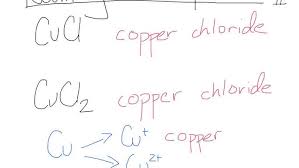 CuCl copper chloride
CuCl2 copper chloride
Cu Cu+ copper
Cu2+